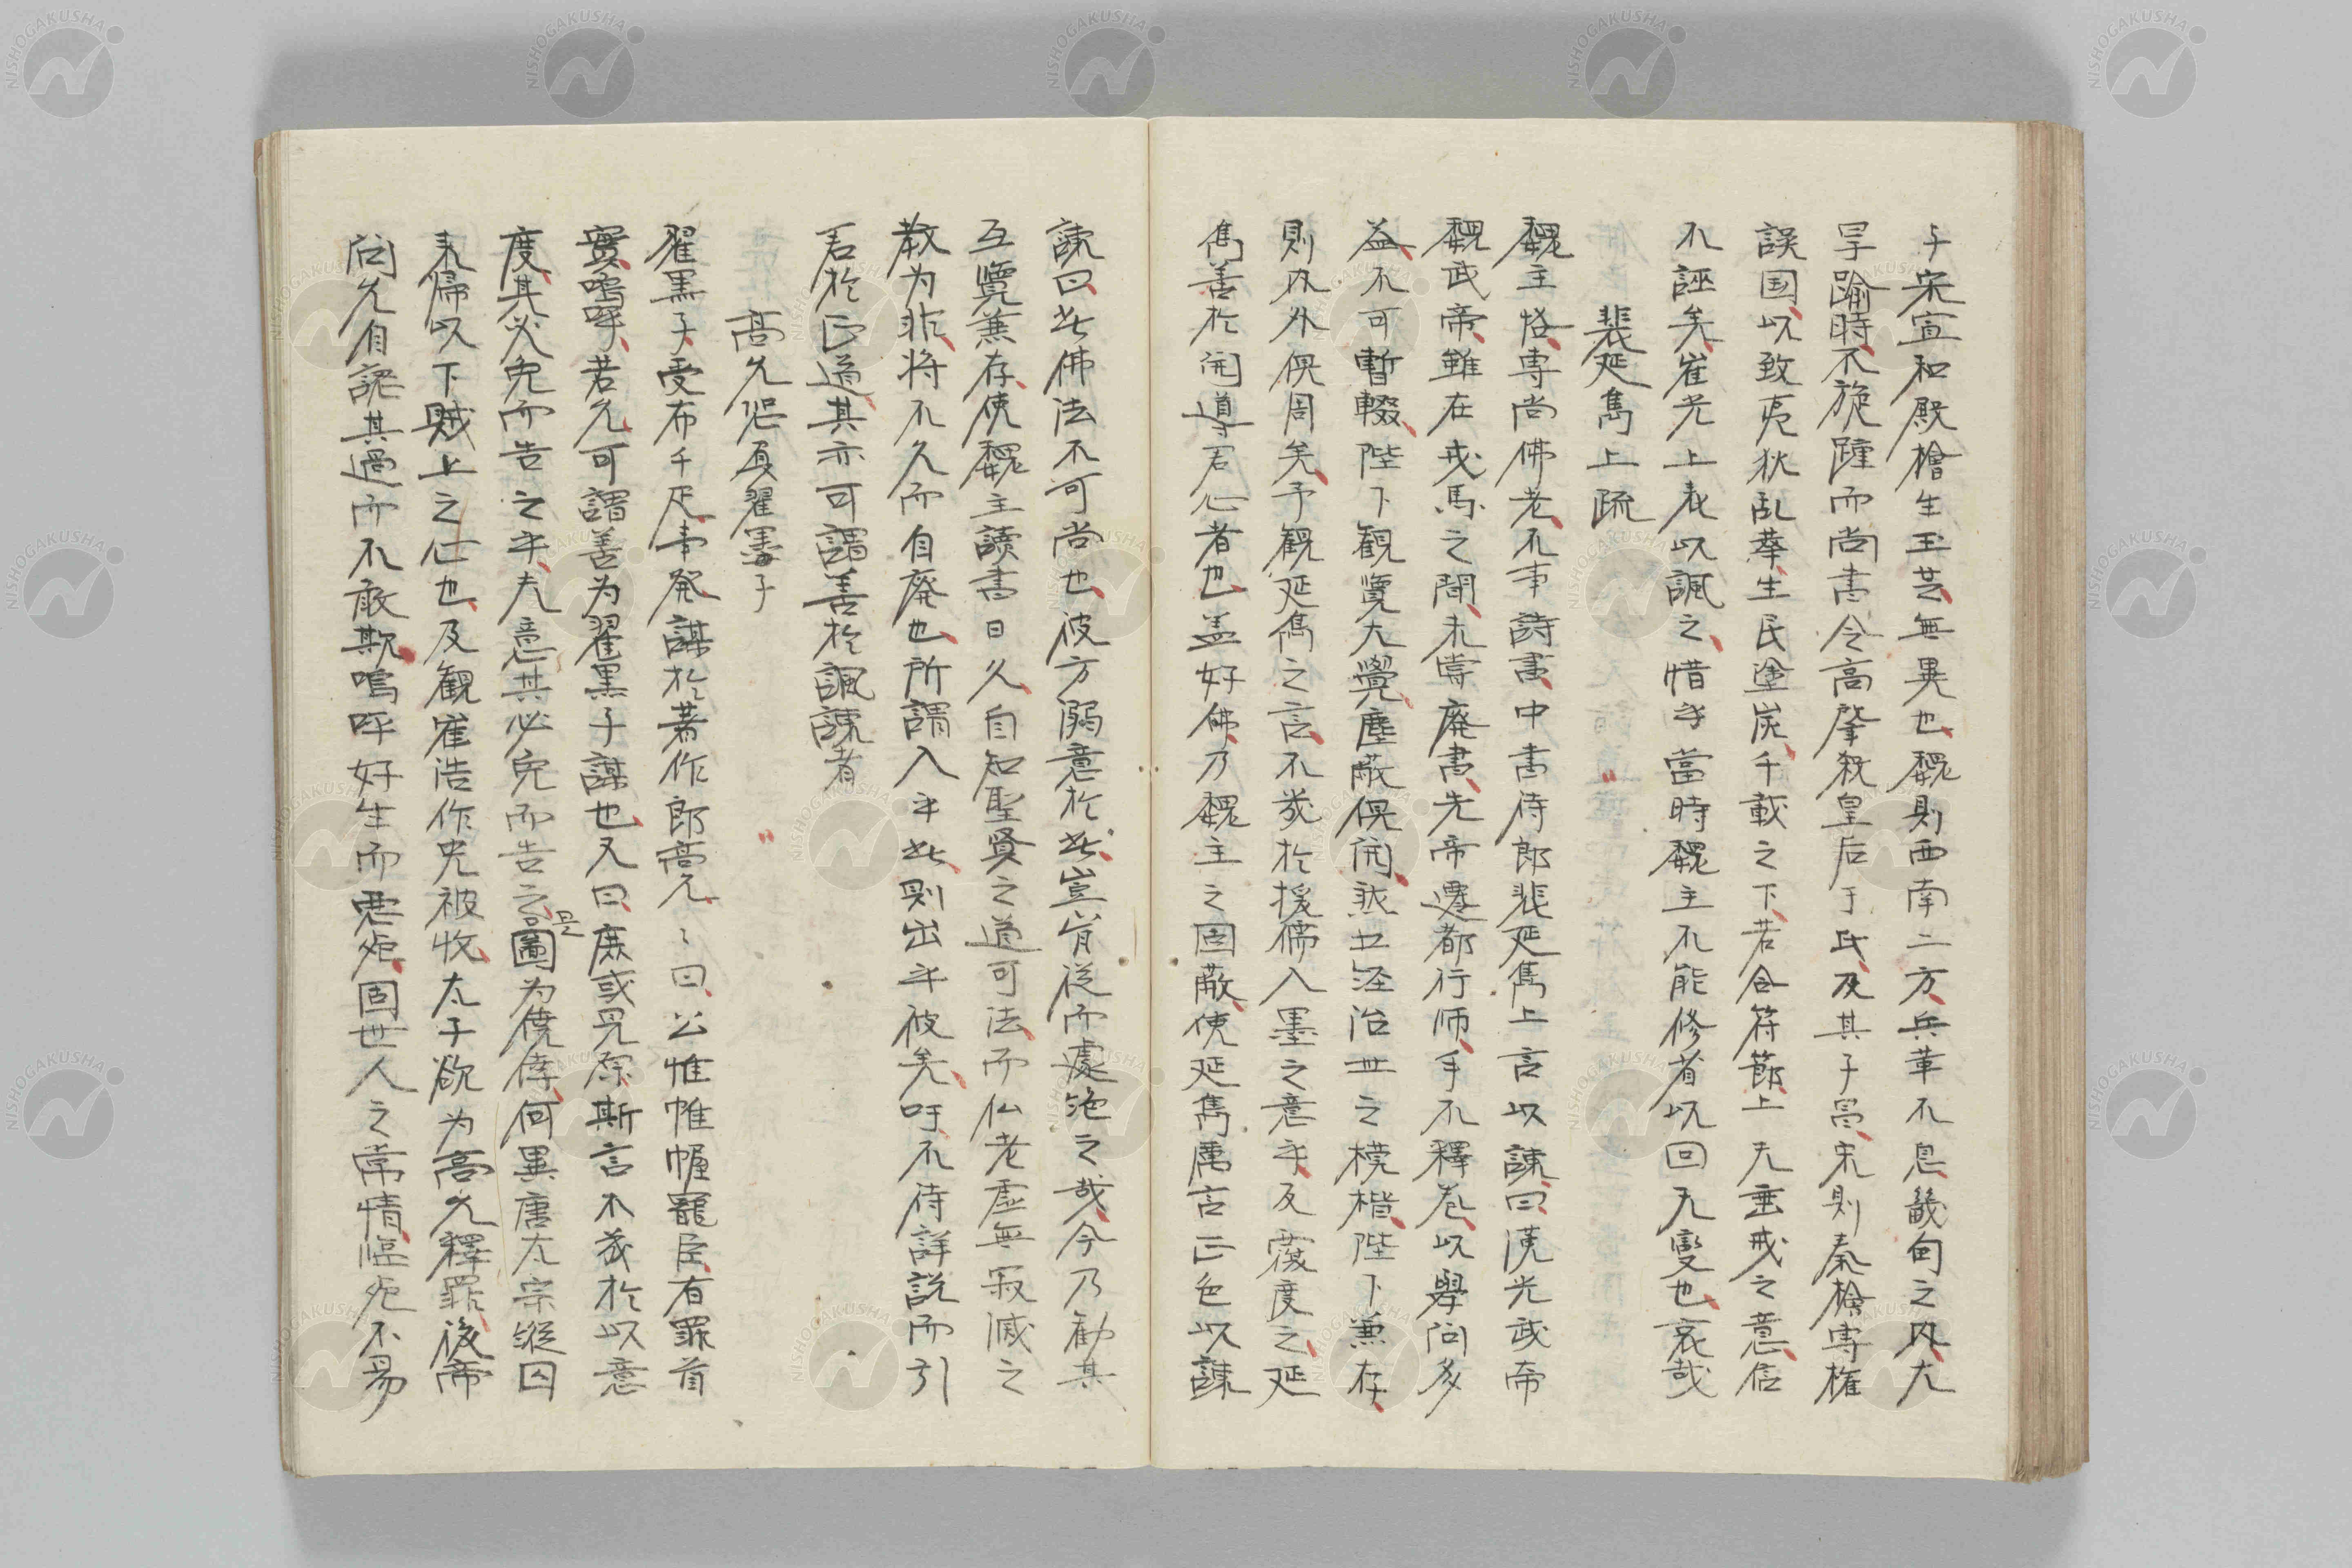 于宋宣和殿檜生玉芸無異也魏則西南二方兵革不息畿甸之内大
旱踰時不旋踵而尚書令高肇殺皇后于氏及其子昌宋則秦檜専権
誤国以致夷狄乱華生民塗炭千載之下若合符節上天垂戒之意信
不誣矣崔光上表以諷之惜乎當時魏主不能修省以回天變也哀哉
裴延雋上疏
魏主恪専尚佛老不事詩書中書侍郎裴延雋上言以諫曰漢光武帝
魏武帝雖在戎馬之間未嘗廃書先帝遷都行師手不釋巻以學问多
益不可暫輟陛下觀覽大覺塵蔽俱開然五経治世之模楷陛下兼存
則内外俱周矣予觀延雋之言不幾於援儒入墨之意乎及覆度之延
雋善於開導君心者也盖好佛乃魏主之固蔽使延雋厲言正色以諫
諫曰此佛法不可尚也彼方溺意於此豈肯從而遽絶之哉今乃勧其
互覽兼存使魏主讀書日久自知聖賢之道可法而仏老虚無寂滅之
教为非将不久而自廃也所謂入乎此則出乎彼矣吁不待詳説而引
君於正道其亦可謂善於諷諫者
高允恐負翟黒子
翟黒子受布千疋事発謀於著作郎高允〻曰公惟帷幄寵臣有罪首
實嗚呼若允可謂善为翟黒子謀也又曰庶或見原斯言不幾於以意
度其必免而告之乎夫意其必免而告之是圖为僥倖何異唐太宗縦囚
来帰以下賊上之心也及觀崔浩作史被收太子欲为高允釋罪後帝
问允自認其過而不敢欺嗚呼好生而悪死固世人之常情臨死不易
NISHOGAKUSHA